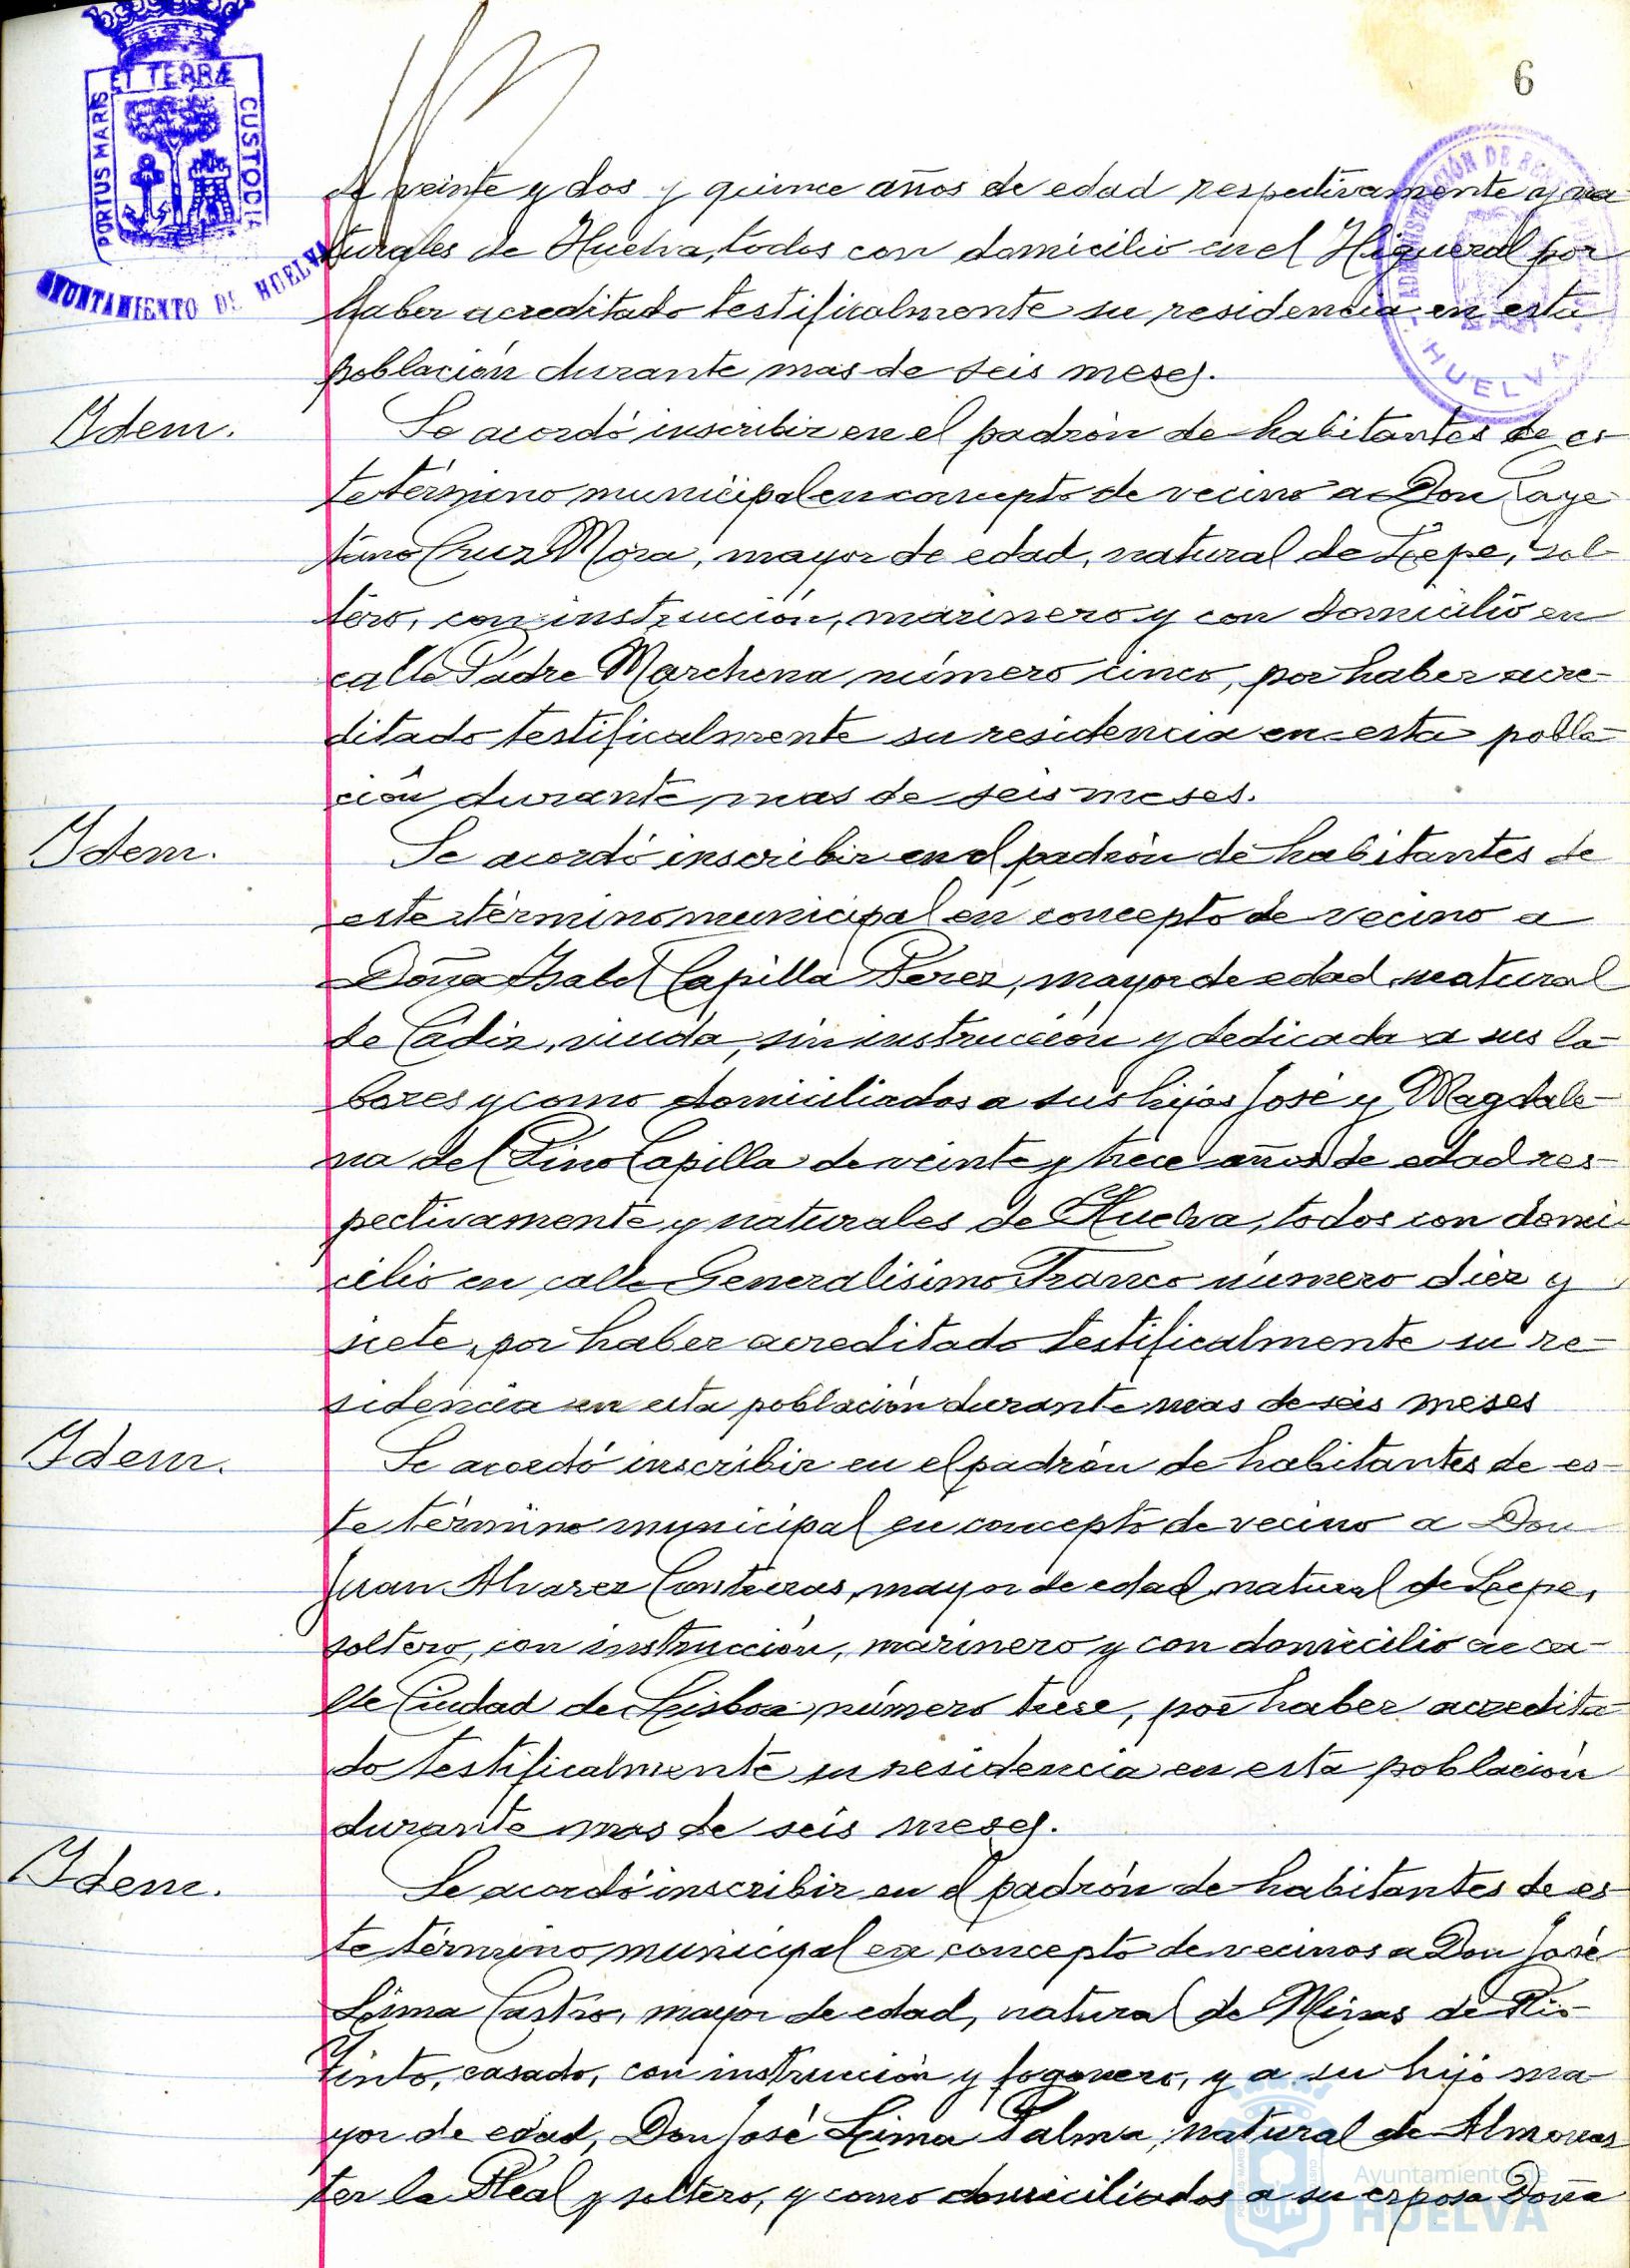 6
PORTUS MARIS ET TERRÆ CUSTODIA
AYUNTAMIENTO DE HUELVA
ADMINISTRACIÓN DE
HUELVA
de veinte y dos y quince años de edad respectivamente y na
turales de Huelva, todos con domicilio en el Higueral por
haber acreditado testificalmente su residencia en esta
población durante mas de seis meses.
Idem.
Se acordó inscribir en el padrón de habitantes de es-
te término municipal en concepto de vecino a Don Caye
tano Cruz Mora, mayor de edad, natural de Lepe, sol-
tero, con instrucción, marinero y con domicilio en
calle Padre Marchena número cinco, por haber acre-
ditado testificalmente su residencia en esta pobla-
ción durante mas de seis meses.
Idem.
Se acordó inscribir en el padrón de habitantes de
este término municipal en concepto de vecino a
Doña Isabel Capilla Perez, mayor de edad, natural
de Cádiz, viuda, sin instrucción y dedicada a sus la-
bores y como domiciliados a sus hijos José y Magdale-
na del Pino Capilla de veinte y trece años de edad res-
pectivamente y naturales de Huelva, todos con domi-
cilio en calle Generalísimo Franco número diez y
siete, por haber acreditado testificalmente su re-
sidencia en esta población durante mas de seis meses
Idem.
Se acordó inscribir en el padrón de habitantes de es-
te término municipal en concepto de vecino a Don
Juan Alvarez Contreras, mayor de edad, natural de Lepe,
soltero, con instrucción, marinero y con domicilio en ca-
lle Ciudad de Lisboa número trese, por haber acredita
do testificalmente su residencia en esta población
durante mas de seis meses.
Idem.
Se acordó inscribir en el padrón de habitantes de es-
te término municipal en concepto de vecinos a Don José
Lima Castro, mayor de edad, natural de Minas de Rio-
Tinto, casado, con instrucción y fogonero, y a su hijo ma
yor de edad, Don José Lima Palma, natural de Almonas
ter la Real y soltero, y como domiciliados a su esposa Doña
Ayuntamiento de
HUELVA